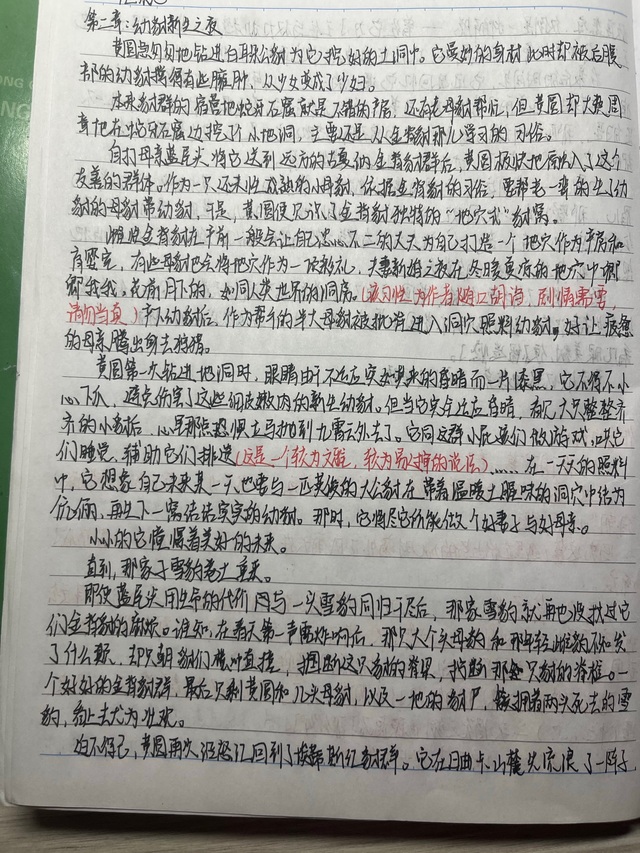 第二章：幼豺新生之夜
黄圆急匆匆地钻进白珠公豺为它挖好的土洞中。它曼妙的身材此时却被后腹
部的幼豺撑得有些臃肿，从少女变成了少妇。
本来豺群的宿营地蛇牙石窟就是不错的产房，还有老母豺帮忙，但黄圆却大费周
章地在蛇牙石窟边挖了个小地洞，主要还是从金背豺那儿学习的习俗。
自打母亲蓝尾尖将它送到远方的古真纳金背豺群后，黄圆很快地融入了这个
友善的群体。作为一只还未性成熟的小母豺，依据金背豺的习俗，要帮老一辈的生了幼
豺的母豺带幼豺，于是，黄圆便见识了金背豺独特的“地穴式”豺窝。
雌性金背豺在产前一般会让自己忠心不二的丈夫为自己打造一个地穴作为产房和
育婴室，有些母豺也会将地穴作为一份彩礼，夫妻新婚之夜在冬暖夏凉的地穴中卿
卿我我。花前月下的，如同人类世界的洞房。（该习性为作者随口胡诌，剧情需要，
请勿当真）产下幼豺后，作为帮手的半大母豺被批准进入洞穴照料幼豺，好让疲惫
的母亲腾出身去捕猎。
黄圆第一次钻进地洞时，眼睛由于不适应突如其来的昏暗而一片漆黑，它不得不小
心下爪，避免伤害了这些细皮嫩肉的新生幼豺。但当它完全适应昏暗，看见六只整整齐
齐的小豺后，心里那点恐惧立马抛到九霄云外去了。它同这群小屁孩们做游戏，哄它
们睡觉，辅助它们排遗（这是一个较为文雅，较为易掉的说法）……在一天天的照料
中，它想象自己未来某一天也要与一匹英俊的大公豺在带着温暖土腥味的洞穴中结为
伉俪，再生下一窝结结实实的幼豺。那时，它将尽它所能做个好妻子与好母亲。
小小的它憧憬着美好的未来。
直到，那家子雪豹卷土重来。
即使蓝尾尖用生命的代价与一头雪豹同归于尽后，那家雪豹就再也没找过它
们金背豺的麻烦。谁知，在春天第一声雷炸响后，那只大个头母豹和那年轻雌豹不知发
了什么颠，却只朝豺们横冲直撞，拥断这只豺的脊梁，拍断那只豺的脊椎。一
个好好的金背豺群，最后只剩黄圆和几头母豺，以及一地的豺尸，簇拥着两头死去的雪
豹，看上去尤为壮观。
迫不得已，黄圆再次回到了埃蒂斯红豺群。它在日曲卡山麓先流浪了一阵子，